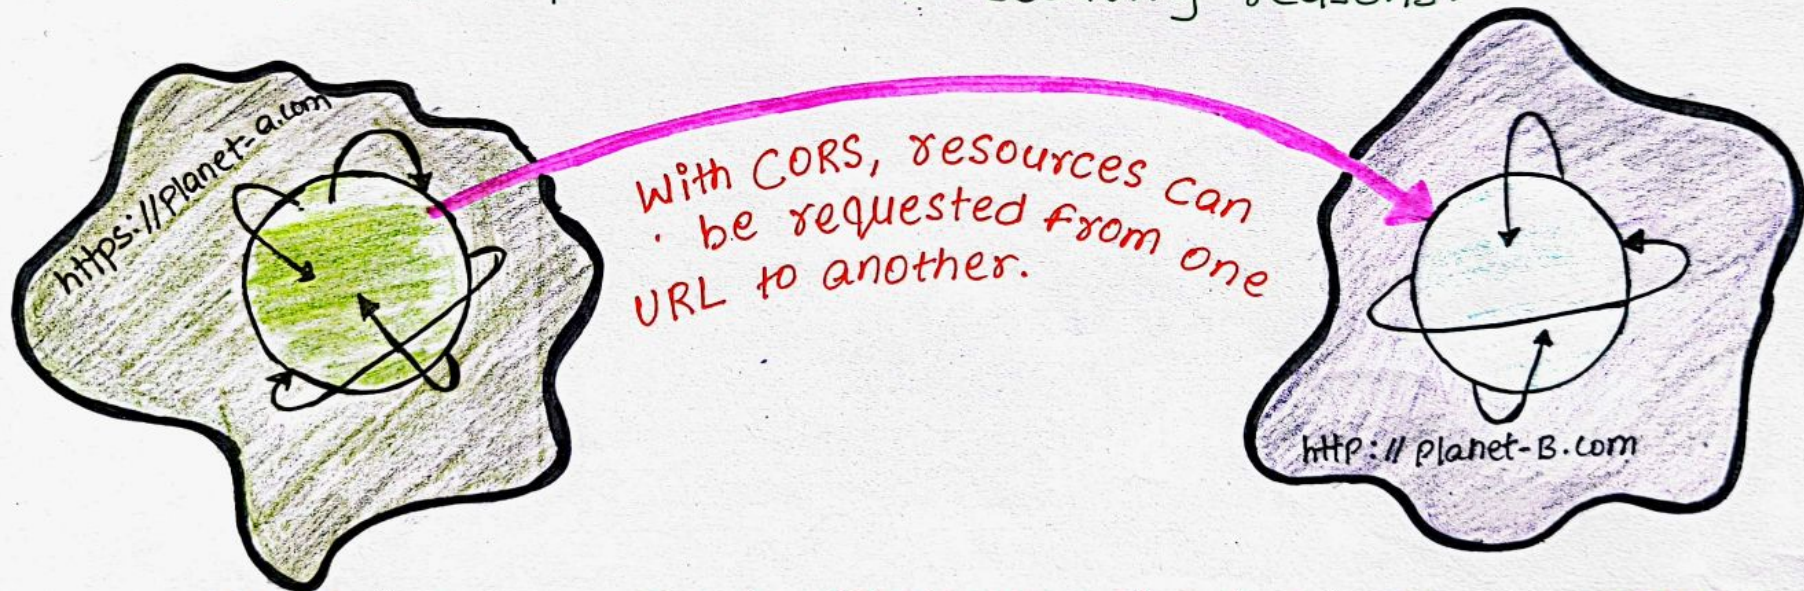 security reasons.
https://planet-a.com
With CORS, resources can
be requested from one
URL to another.
http://planet-B.com